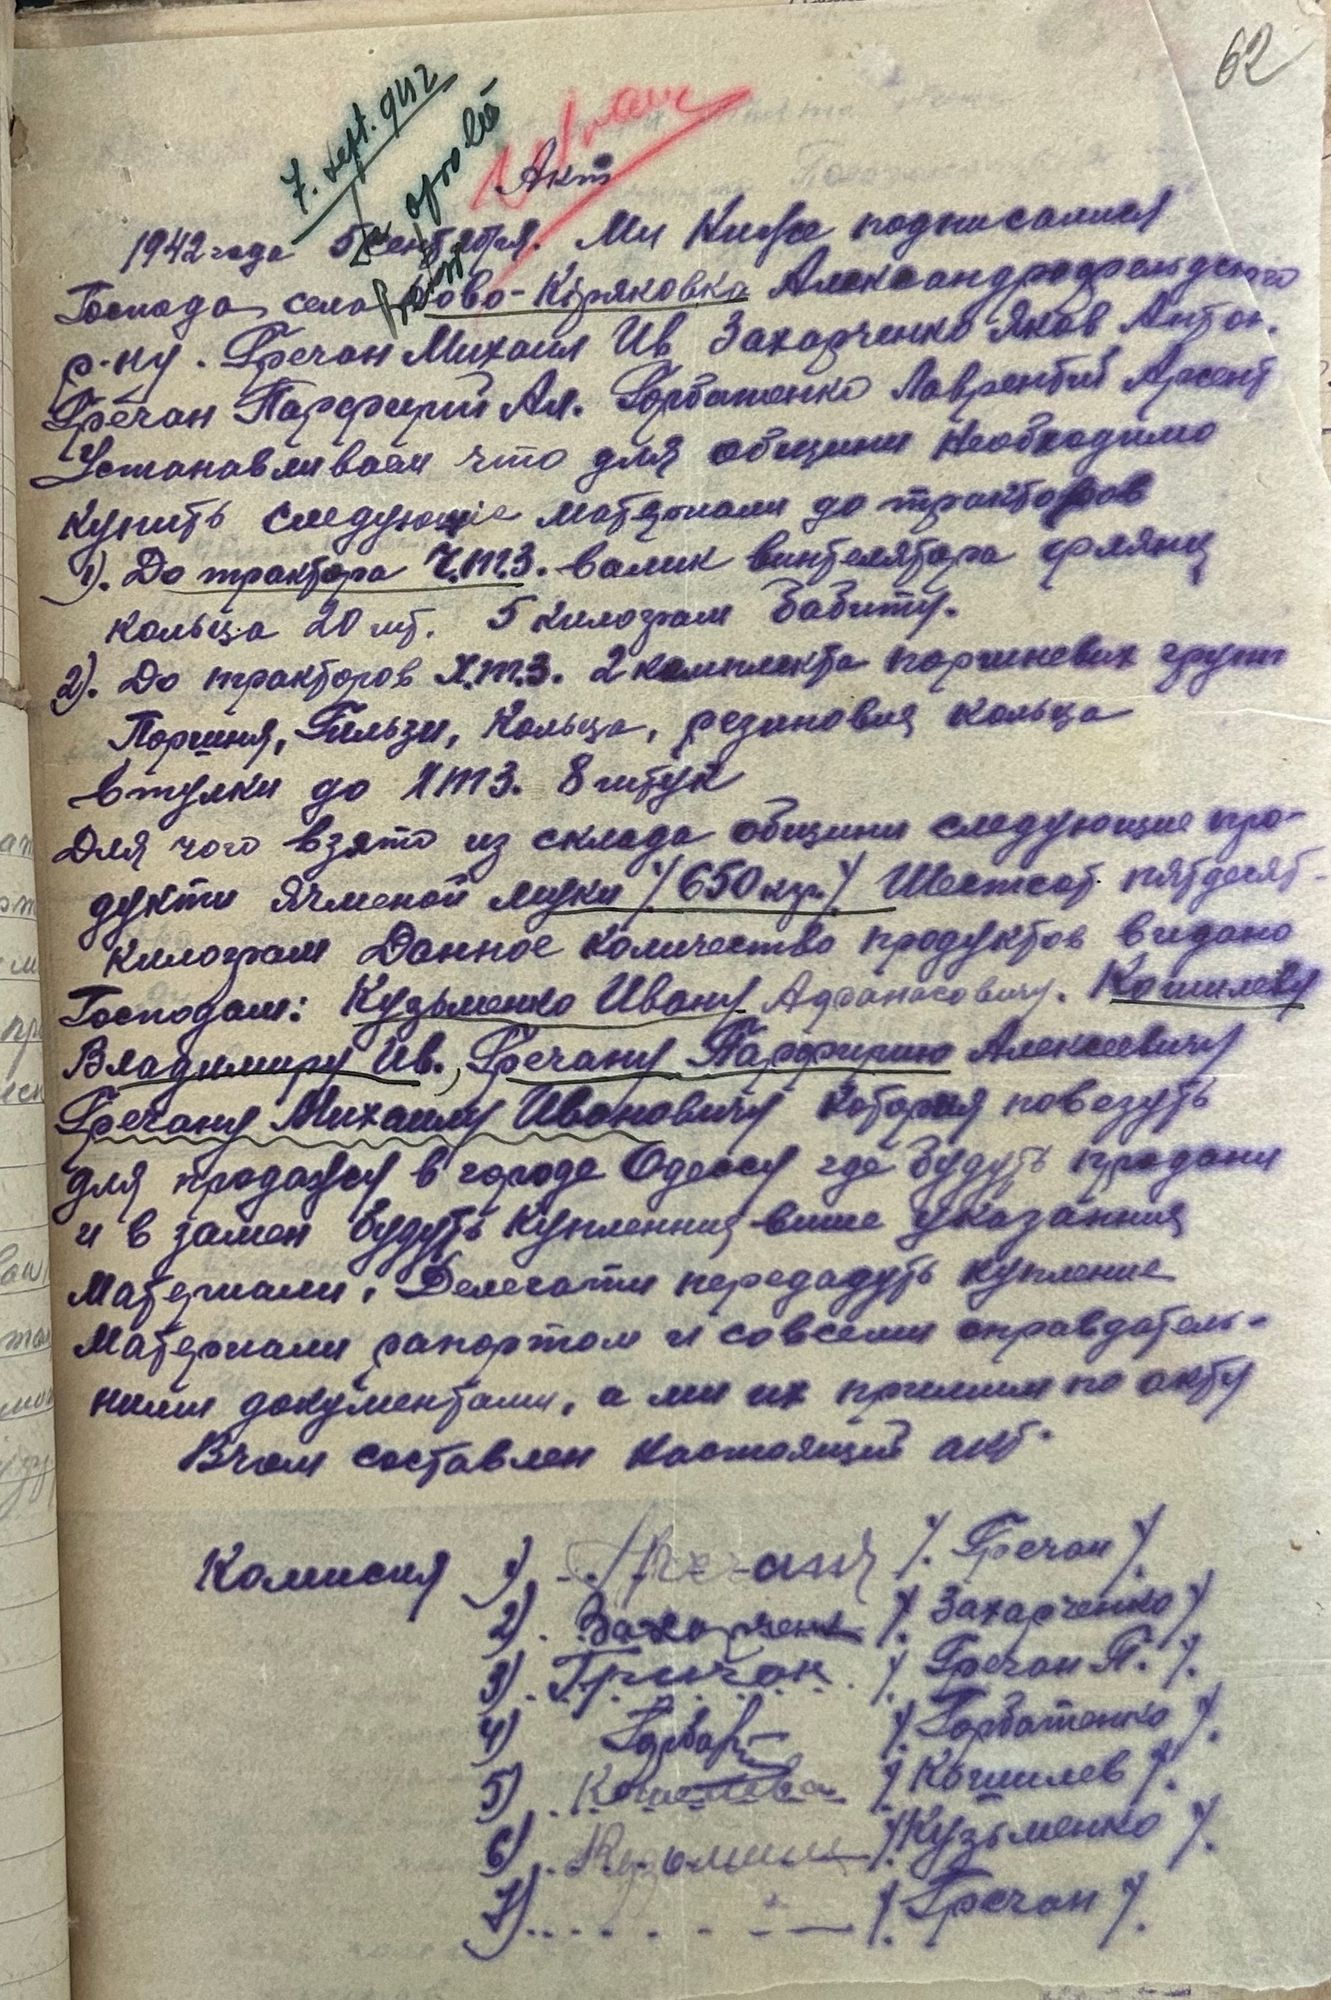 62
7. Sept. 942
Se aprobă
Акт
1942 года 5 сентября. Ми Ниже подписался
Господа села Ново-Кіряковка Александрофельдского
р-ну. Гречан Михаил Ив Захарченко Яков Антон.
Гречан Парфирий Ал. Горбатенко Лаврентий Арсент
Устанавливаем что для общини необходимо
купить следующіе матерыали до тракторов
1). До трактора Ч.Т.З. валик винтелятора флянц
кольца 20 шт. 5 килограм бабиту.
2). До тракторов Х.Т.З. 2 комплекта поршневих групп
Поршня, Гильзи, Кольца, резиновия кольца
втулки до ХТЗ. 8 штук
Для чого взято из склада общини следующие про-
дукти Ячменой муки /650 кгр./ Шестсот пятдесят
килограм Данное количество продуктов видано
Господам: Кузьменко Ивану Афанасовичу. Кошилеву
Владимиру Ив., Гречану Парфирию Алексеевичу
Гречану Михаилу Ивановичу которыя повезуть
для продажи в городе Одесси где будуть продани
и в замен будуть купленния више указания
Материали. Делегати передадуть купление
Материали рапортом и совсеми оправдатель-
ними документами, а ми их примим по акту
Вчом составлен настоящий акт.
Комисия 1) Гречаня /. Гречан /.
2). Захарченк /. Захарченко /.
3). Гричан /. Гречан П. /.
4) Горбат /. Горбатенко /.
5). Кошилева /. Кошилев /.
6). Кузьменко /. Кузьменко /.
7) /. Гречан /.